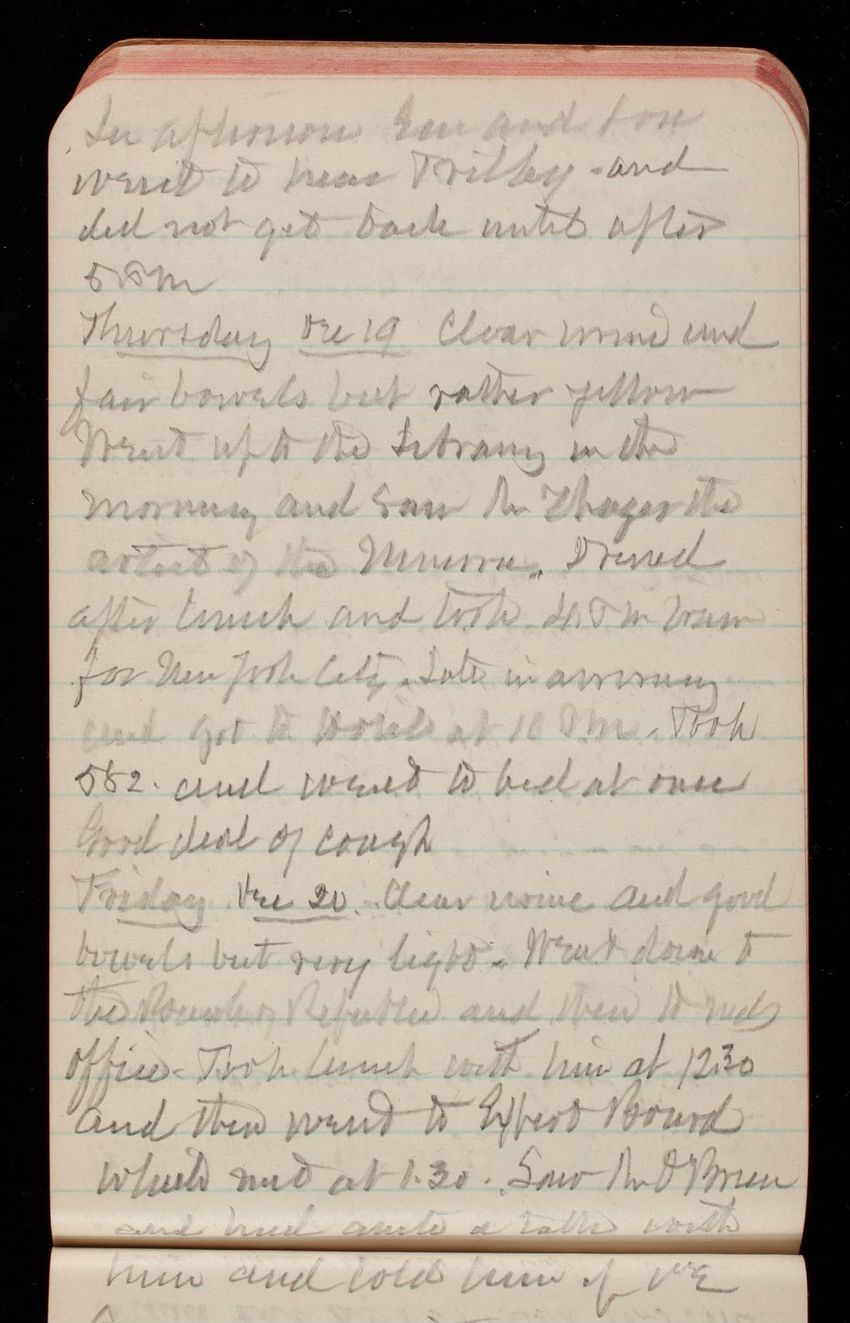 In afternoon Gen and Lou
went to hear Trilby and
did not get back until after
5 P M
Thursday Dec 19 Clear urine and
fair bowels but rather yellow
Went up to the Library in the
morning and saw Mr the
artist of the Dressed
after lunch and took 4. P M train
for New York City. Late in arriving
and got to Hotel at 10 P.M. Took
582. and went to bed at once
Good deal of cough
Friday Dec 20. Clear urine and good
bowels but very light. Went down to
the Bank of Republic and then to Neds
office. Took lunch with him at 12.30
and then went to Expert Board
which met at 1.30. Saw Mr O'Brien
and had quite a talk with
him and told him if we